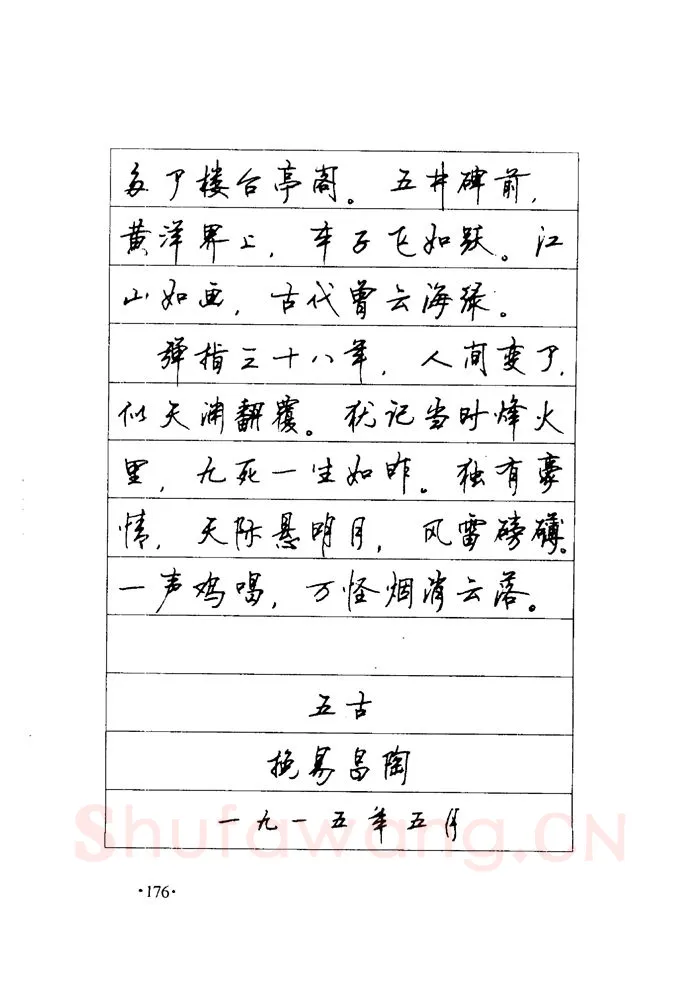 多了楼台亭阁。五井碑前，
黄洋界上，车子飞如跃。江
山如画，古代曾云海绿。
弹指三十八年，人间变了，
似天渊翻覆。犹记当时烽火
里，九死一生如昨。独有豪
情，天际悬明月，风雷磅礴。
一声鸡唱，万怪烟消云落。
五古
挽易昌陶
一九一五年五月
Shufawang.CN
·176·